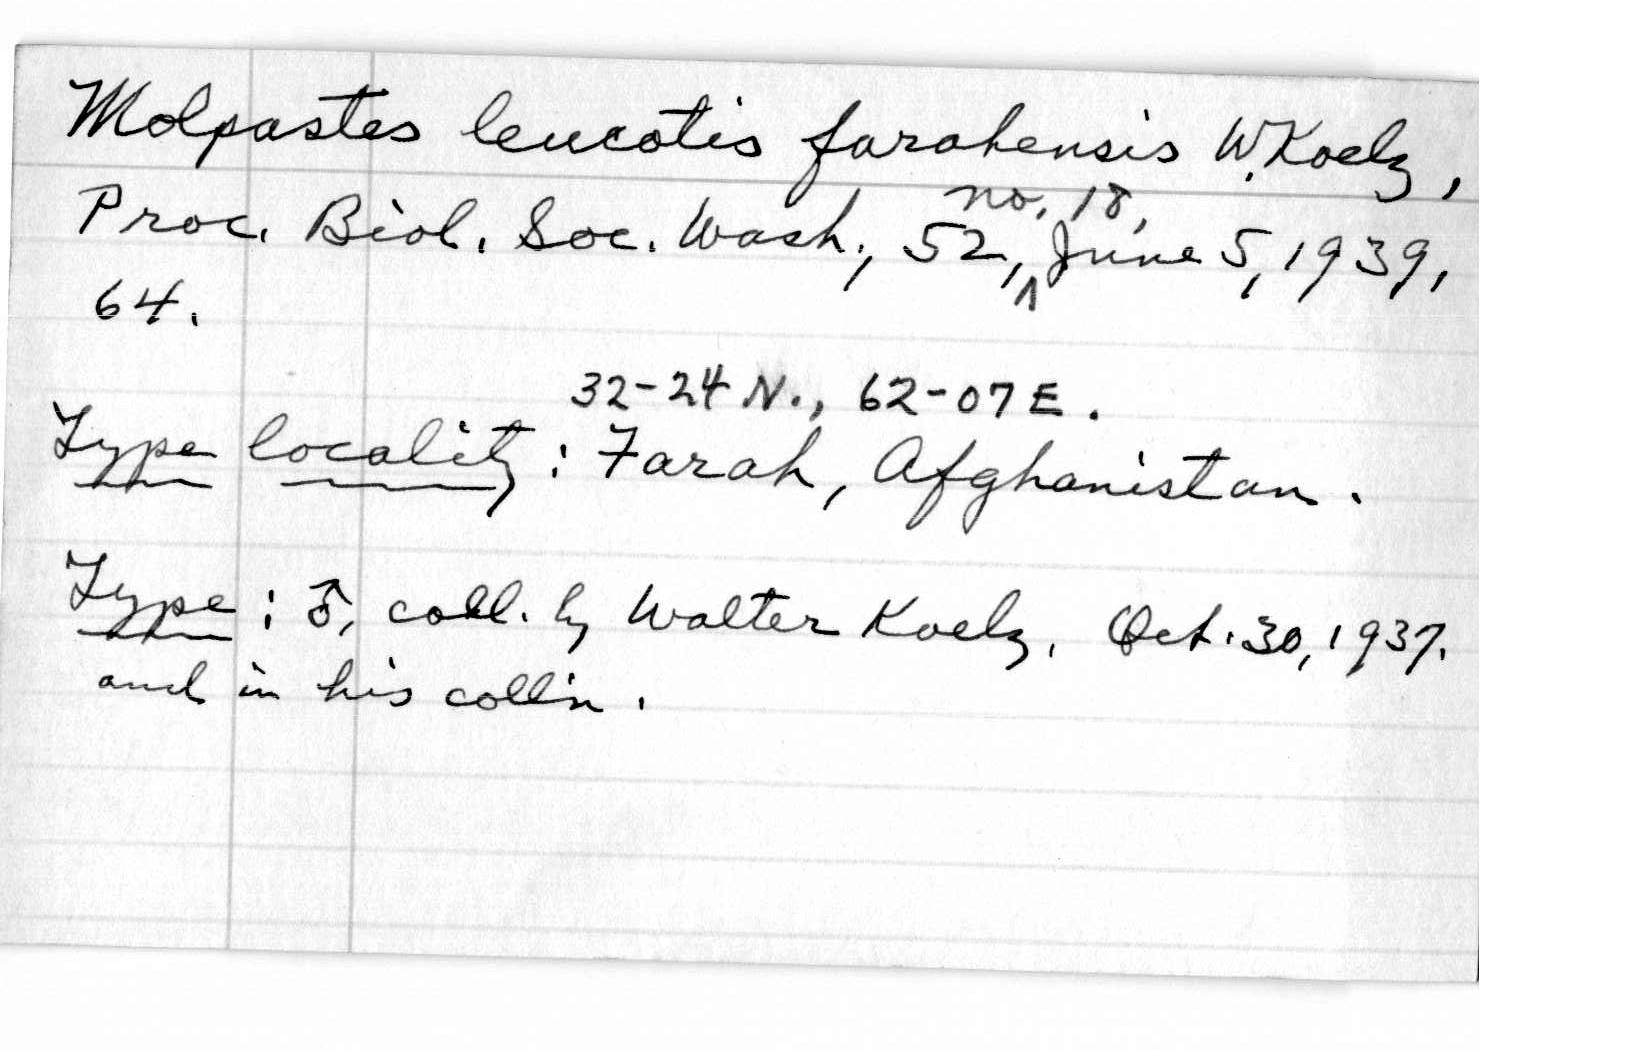 Molpastes leucotis farahensis W. Koelz,
Proc. Biol. Soc. Wash., 52, no. 18, June 5, 1939,
64.
32-24 N., 62-07 E.
Type locality: Farah, Afghanistan.
Type: ♂, coll. by Walter Koelz, Oct. 30, 1937.
and in his coll'n.